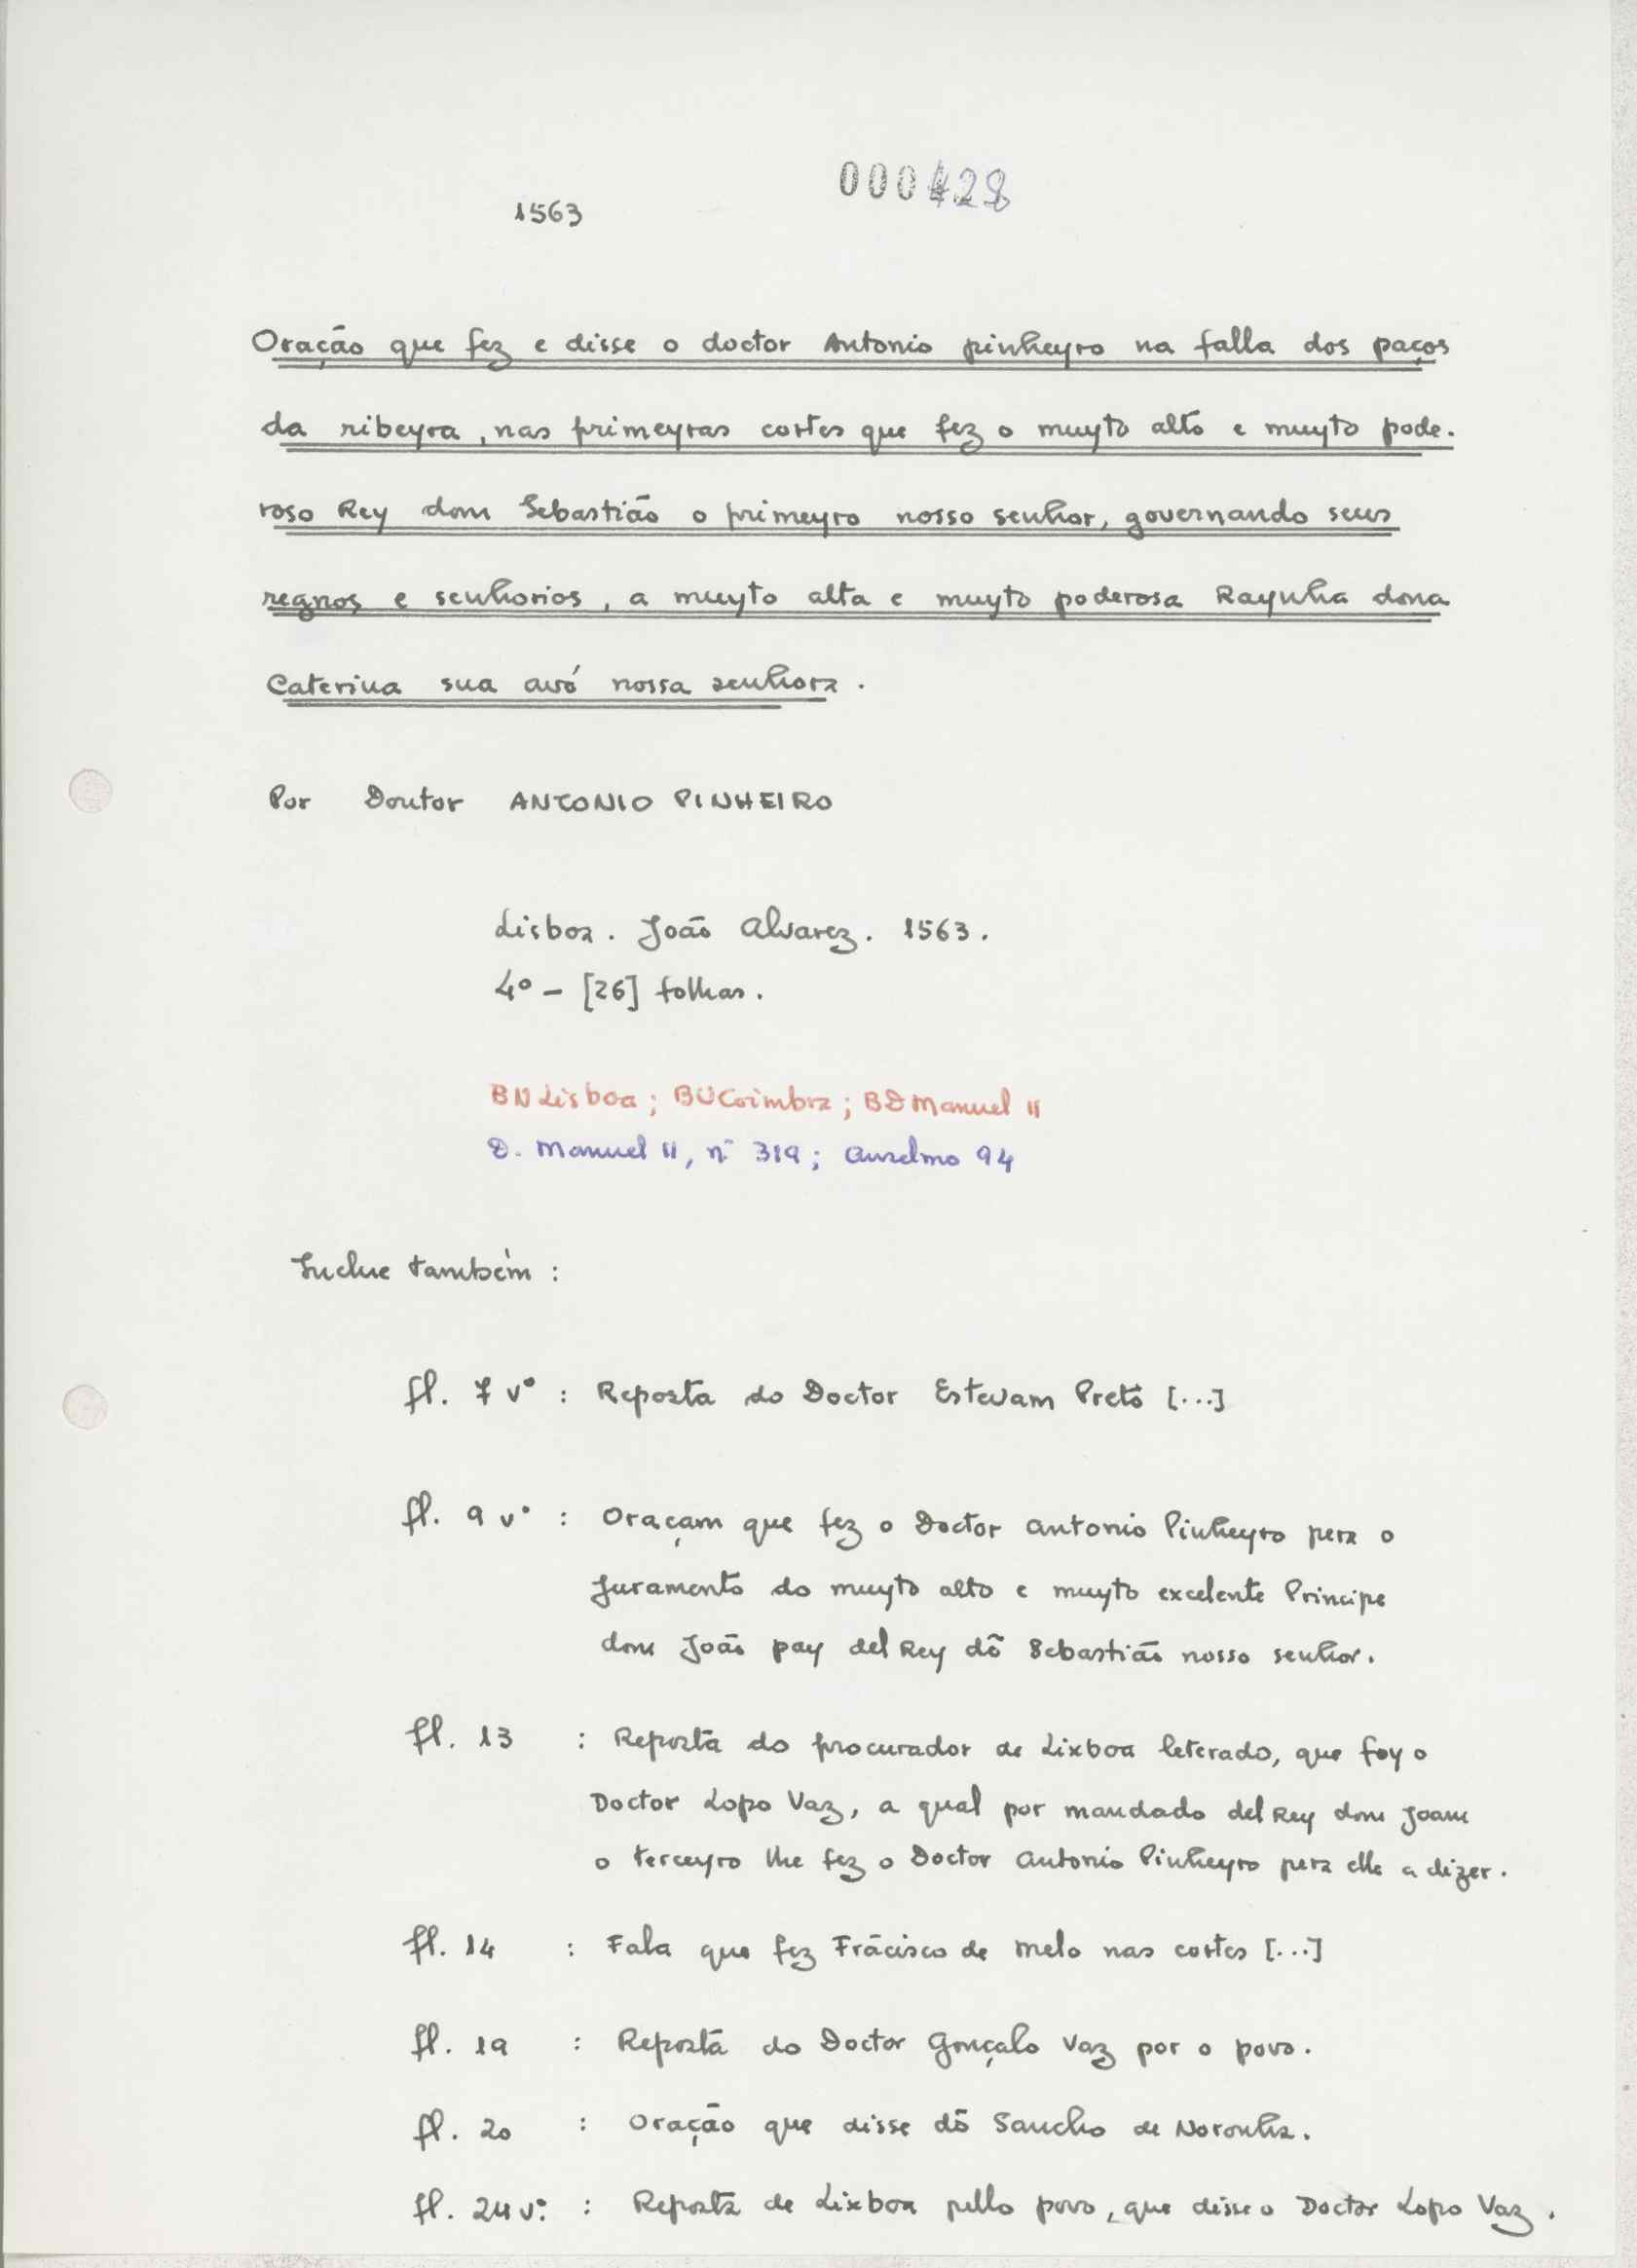 000428
1563
Oração que fez e disse o doctor Antonio pinheyro na falla dos paços
da ribeyra, nas primeyras cortes que fez o muyto alto e muyto pode-
roso Rey dom Sebastião o primeyro nosso senhor, governando seus
regnos e senhorios, a muyto alta e muyto poderosa Raynha dona
Caterina sua avó nossa senhora.
Por Doutor ANTONIO PINHEIRO
Lisboa. João Alvarez. 1563.
4º - [26] folhas.
BNLisboa; BUCoimbra; BDManuel II
D. Manuel II, nº 319; Anselmo 94
Inclue também:
fl. 7 vº : Reposta do Doctor Estevam Preto [...]
fl. 9 vº : Oraçam que fez o Doctor Antonio Pinheyro pera o
Juramento do muyto alto e muyto excelente Principe
dom João pay del Rey dõ Sebastião nosso senhor.
fl. 13 : Reposta do procurador de Lixboa leterado, que foy o
Doctor Lopo Vaz, a qual por mandado del Rey dom Joam
o terceyro lhe fez o Doctor Antonio Pinheyro pera elle a dizer.
fl. 14 : Fala que fez Frãcisco de Melo nas cortes [...]
fl. 19 : Reposta do Doctor Gonçalo Vaz por o povo.
fl. 20 : Oração que disse dõ Sancho de Noronha.
fl. 24 vº : Reposta de Lixboa pello povo, que disse o Doctor Lopo Vaz.